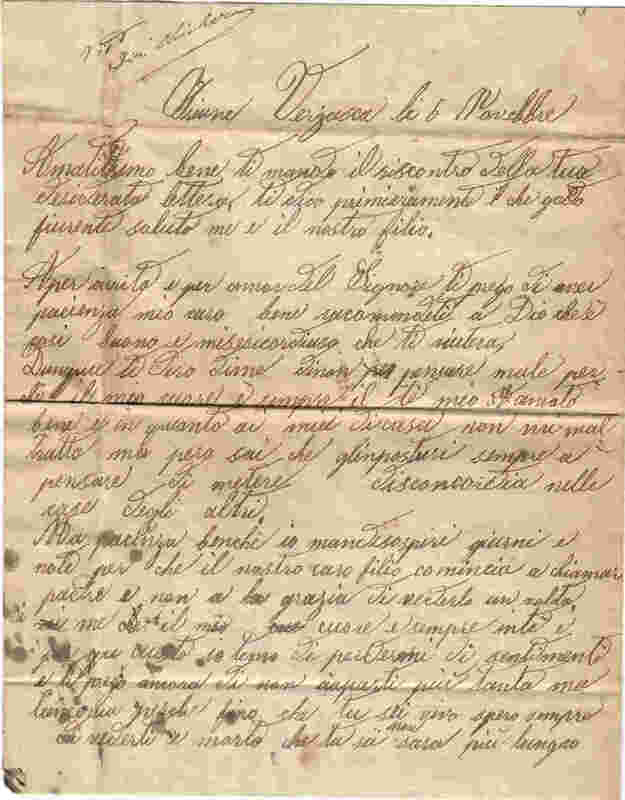 Verzasca li 5 Novebbre
Amatissimo bene ti mando il riscontro della tua
desiderata lettera, ti dico primieramente che
saluto me e il nostro filio.
e per amor del Signore ti prego di aver
pacienza mio caro bene racomandeti a Dio che è
così buono e misericordiuso che ti iutera,
Dunque ti Diro Dime Dinon pensare male per
mio cuore è sempre il tè mio amato
bene e in quanto ai miei Dicasa non mi mal
tratto ma pero sai che glinposturi sempre a
pensare Di metere Disconcordia nelle
case Degli altri,
Ma pacienza benchè io mandisospiri giorni e
note per che il nostro caro filio comincia a chiamar
padre e non a la grazia Di vederlo un volta,
me il mio cuore e sempre intè e
per questo io temo Di perdermi Di sentimenti
e ti prego ancora Di non più tanta me
lanconia che tu sei vivo spero sempre
Di vederti e morto che tu sii non sara più lungao